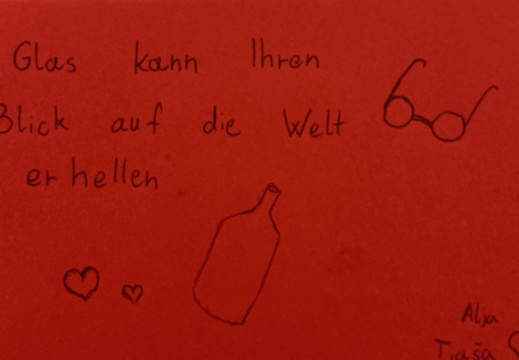 Glas kann Ihren
Blick auf die Welt
erhellen
Alja
Tjaša